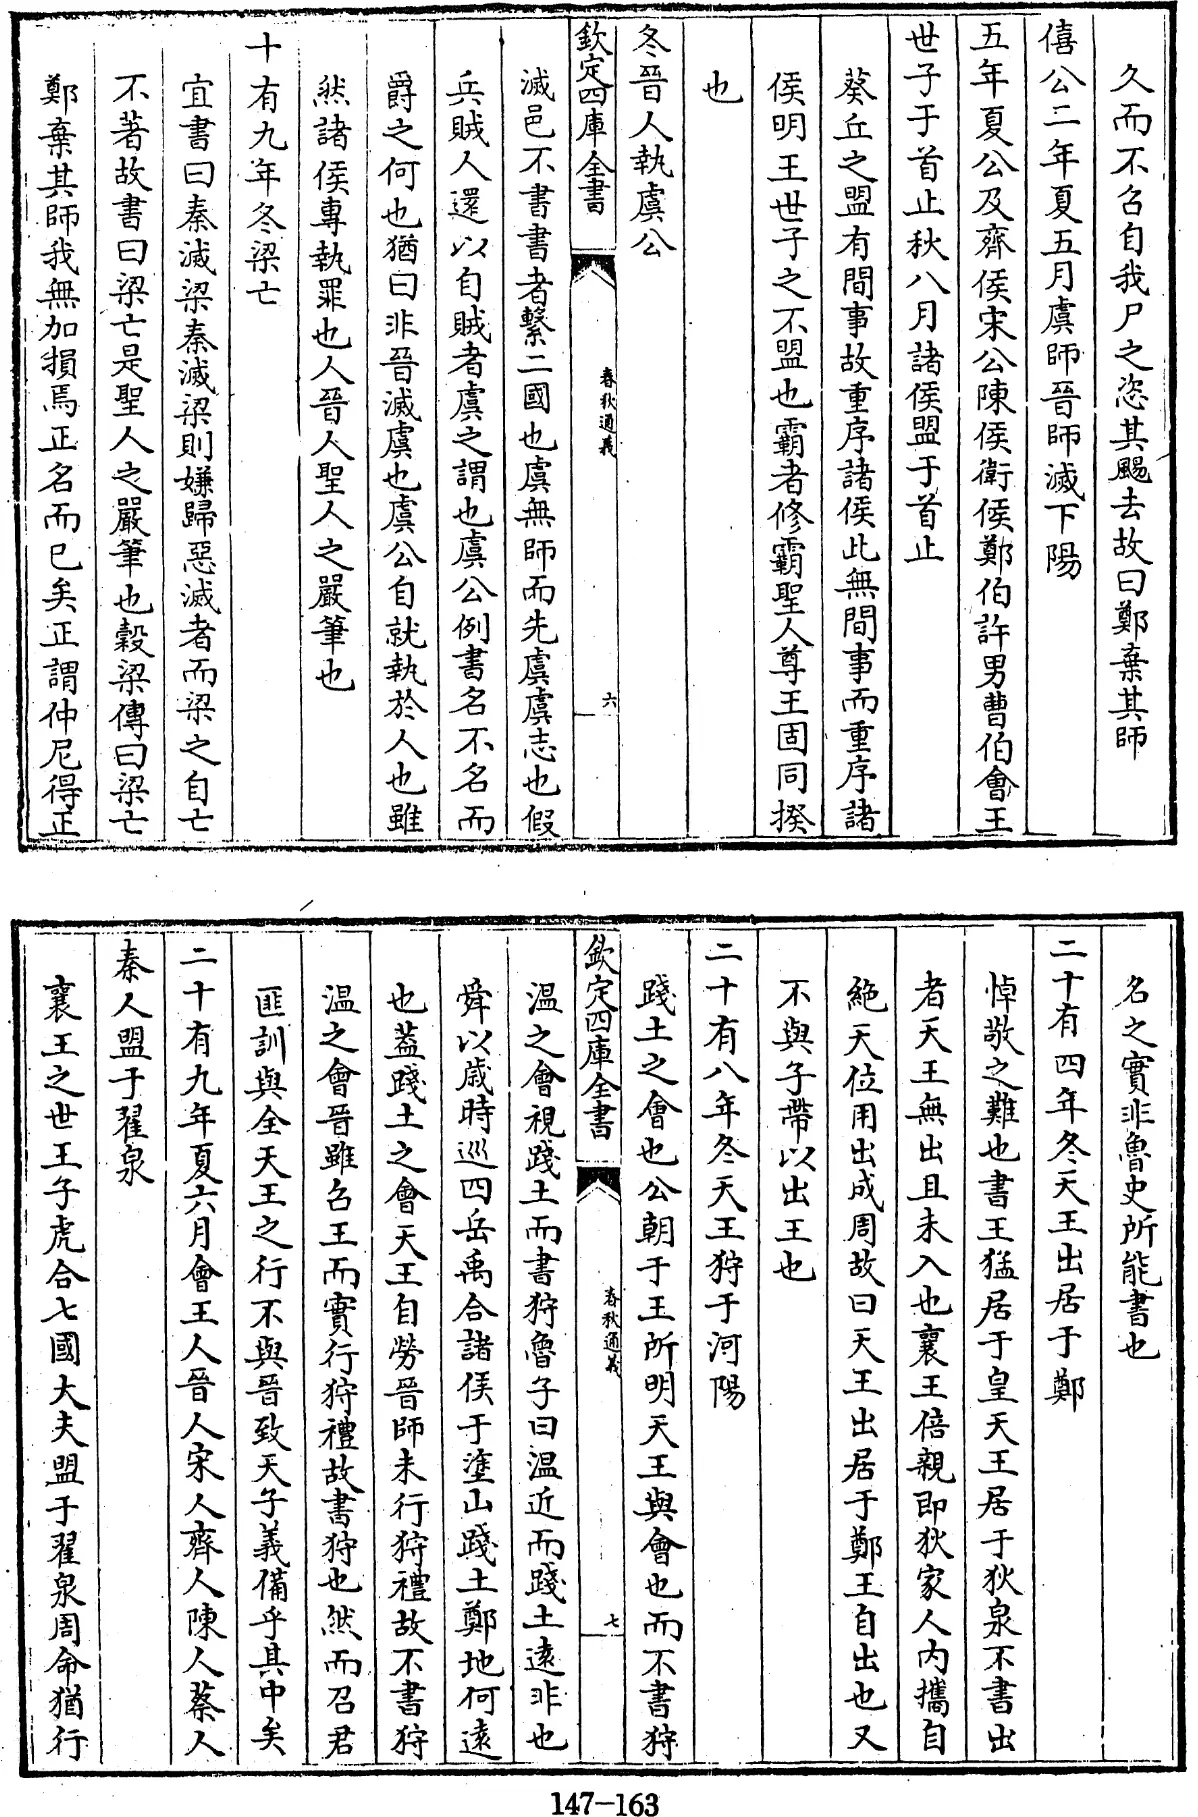 久而不召自我尸之恣其颺去故曰鄭棄其師
僖公二年夏五月虞師晉師滅下陽
五年夏公及齊侯宋公陳侯衛侯鄭伯許男曹伯會王
世子于首止秋八月諸侯盟于首止
葵丘之盟有間事故重序諸侯此無間事而重序諸
侯明王世子之不盟也霸者修霸聖人尊王固同揆
也
冬晉人執虞公
欽定四庫全書
春秋通義
六
滅邑不書書者繫二國也虞無師而先虞虞志也假
兵賊人還以自賊者虞之謂也虞公例書名不名而
爵之何也猶曰非晉滅虞也虞公自就執於人也雖
然諸侯專執罪也人晉人聖人之嚴筆也
十有九年冬梁亡
宜書曰秦滅梁秦滅梁則嫌歸惡滅者而梁之自亡
不著故書曰梁亡是聖人之嚴筆也穀梁傳曰梁亡
鄭棄其師我無加損焉正名而已矣正謂仲尼得正
名之實非魯史所能書也
二十有四年冬天王出居于鄭
悼敬之難也書王猛居于皇天王居于狄泉不書出
者天王無出且未入也襄王倍親即狄家人內攜自
絶天位用出成周故曰天王出居于鄭王自出也又
不與子帶以出王也
二十有八年冬天王狩于河陽
踐土之會也公朝于王所明天王與會也而不書狩
欽定四庫全書
春秋通義
七
温之會視踐土而書狩魯子曰温近而踐土遠非也
舜以歲時巡四岳禹合諸侯于塗山踐土鄭地何遠
也葢踐土之會天王自勞晉師未行狩禮故不書狩
温之會晉雖召王而實行狩禮故書狩也然而召君
匪訓與全天王之行不與晉致天子義備乎其中矣
二十有九年夏六月會王人晉人宋人齊人陳人蔡人
秦人盟于翟泉
襄王之世王子虎合七國大夫盟于翟泉周命猶行
147-163